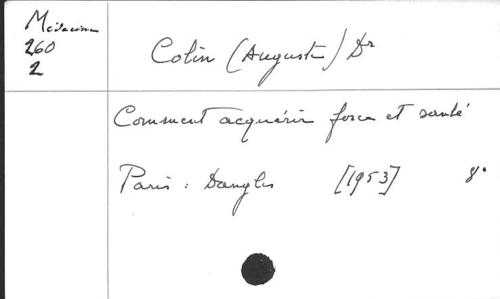 Médecine
260
2
Colin (Auguste) Dr
Comment acquérir force et santé
Paris : Dangles [1953] 8°